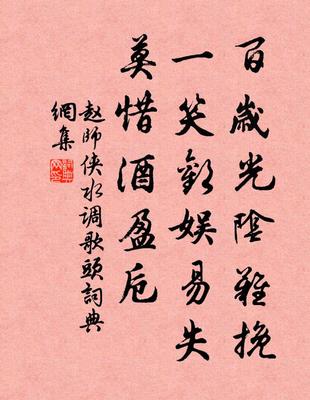 百歲光陰難挽
一笑歡娛易失
莫惜酒盈卮
趙師俠水调歌頭詞典
網集